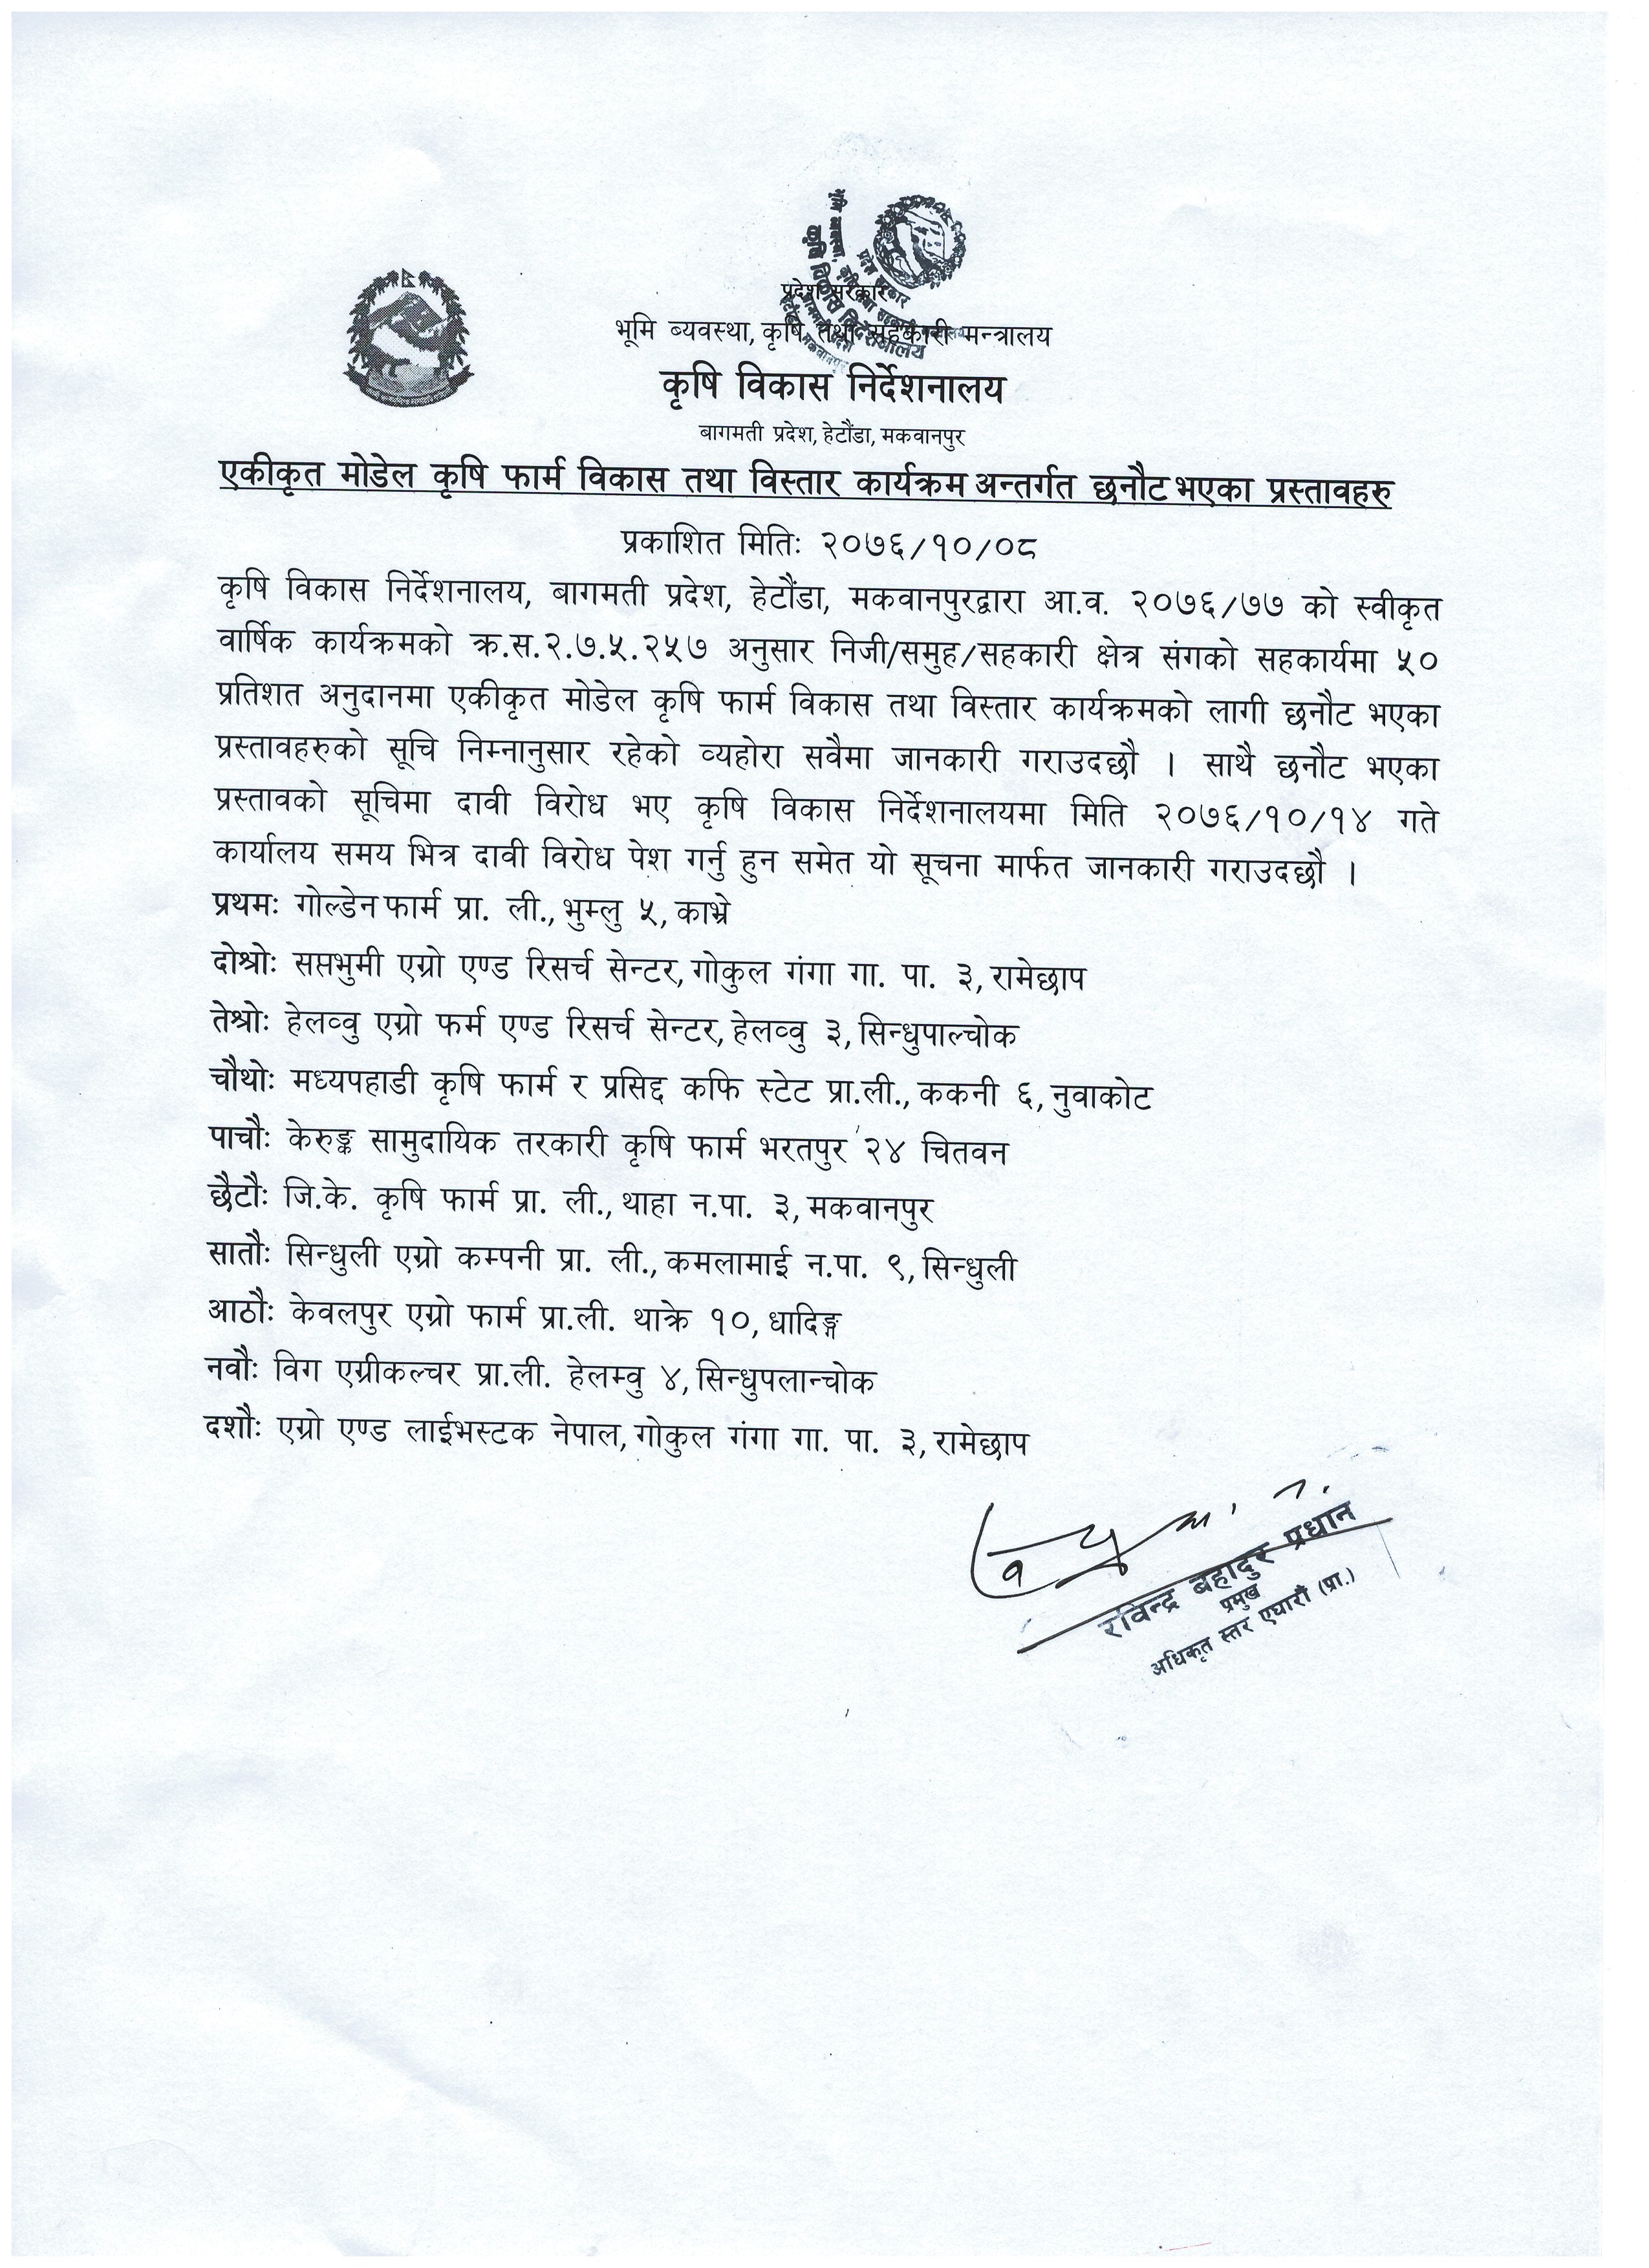 प्रदेश सरकार
भूमि ब्यवस्था, कृषि तथा सहकारी मन्त्रालय
कृषि विकास निर्देशनालय
बागमती प्रदेश, हेटौंडा, मकवानपुर
एकीकृत मोडेल कृषि फार्म विकास तथा विस्तार कार्यक्रम अन्तर्गत छनौट भएका प्रस्तावहरु
प्रकाशित मितिः २०७६/१०/०८
कृषि विकास निर्देशनालय, बागमती प्रदेश, हेटौंडा, मकवानपुरद्वारा आ.व. २०७६/७७ को स्वीकृत
वार्षिक कार्यक्रमको क्र.स.२.७.५.२५७ अनुसार निजी/समुह/सहकारी क्षेत्र संगको सहकार्यमा ५०
प्रतिशत अनुदानमा एकीकृत मोडेल कृषि फार्म विकास तथा विस्तार कार्यक्रमको लागी छनौट भएका
प्रस्तावहरुको सूचि निम्नानुसार रहेको व्यहोरा सवैमा जानकारी गराउदछौ । साथै छनौट भएका
प्रस्तावको सूचिमा दावी विरोध भए कृषि विकास निर्देशनालयमा मिति २०७६/१०/१४ गते
कार्यालय समय भित्र दावी विरोध पेश गर्नु हुन समेत यो सूचना मार्फत जानकारी गराउदछौ ।
प्रथमः गोल्डेन फार्म प्रा. ली., भुम्लु ५, काभ्रे
दोश्रोः सप्तभुमी एग्रो एण्ड रिसर्च सेन्टर, गोकुल गंगा गा. पा. ३, रामेछाप
तेश्रोः हेलव्वु एग्रो फर्म एण्ड रिसर्च सेन्टर, हेलव्वु ३, सिन्धुपाल्चोक
चौथोः मध्यपहाडी कृषि फार्म र प्रसिद्द कफि स्टेट प्रा.ली., ककनी ६, नुवाकोट
पाचौः केरुङ्क सामुदायिक तरकारी कृषि फार्म भरतपुर २४ चितवन
छैटौः जि.के. कृषि फार्म प्रा. ली., थाहा न.पा. ३, मकवानपुर
सातौः सिन्धुली एग्रो कम्पनी प्रा. ली., कमलामाई न.पा. ९, सिन्धुली
आठौः केवलपुर एग्रो फार्म प्रा.ली. थाक्रे १०, धादिङ्ग
नवौः विग एग्रीकल्चर प्रा.ली. हेलम्वु ४, सिन्धुपलान्चोक
दशौः एग्रो एण्ड लाईभस्टक नेपाल, गोकुल गंगा गा. पा. ३, रामेछाप
रविन्द्र बहादुर प्रधान
प्रमुख
अधिकृत स्तर एघारौं (प्रा.)